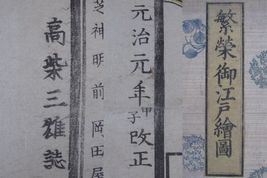 繁榮御江戸繪圖
元治元年甲子改正
芝神明前 岡田屋
高柴三雄誌